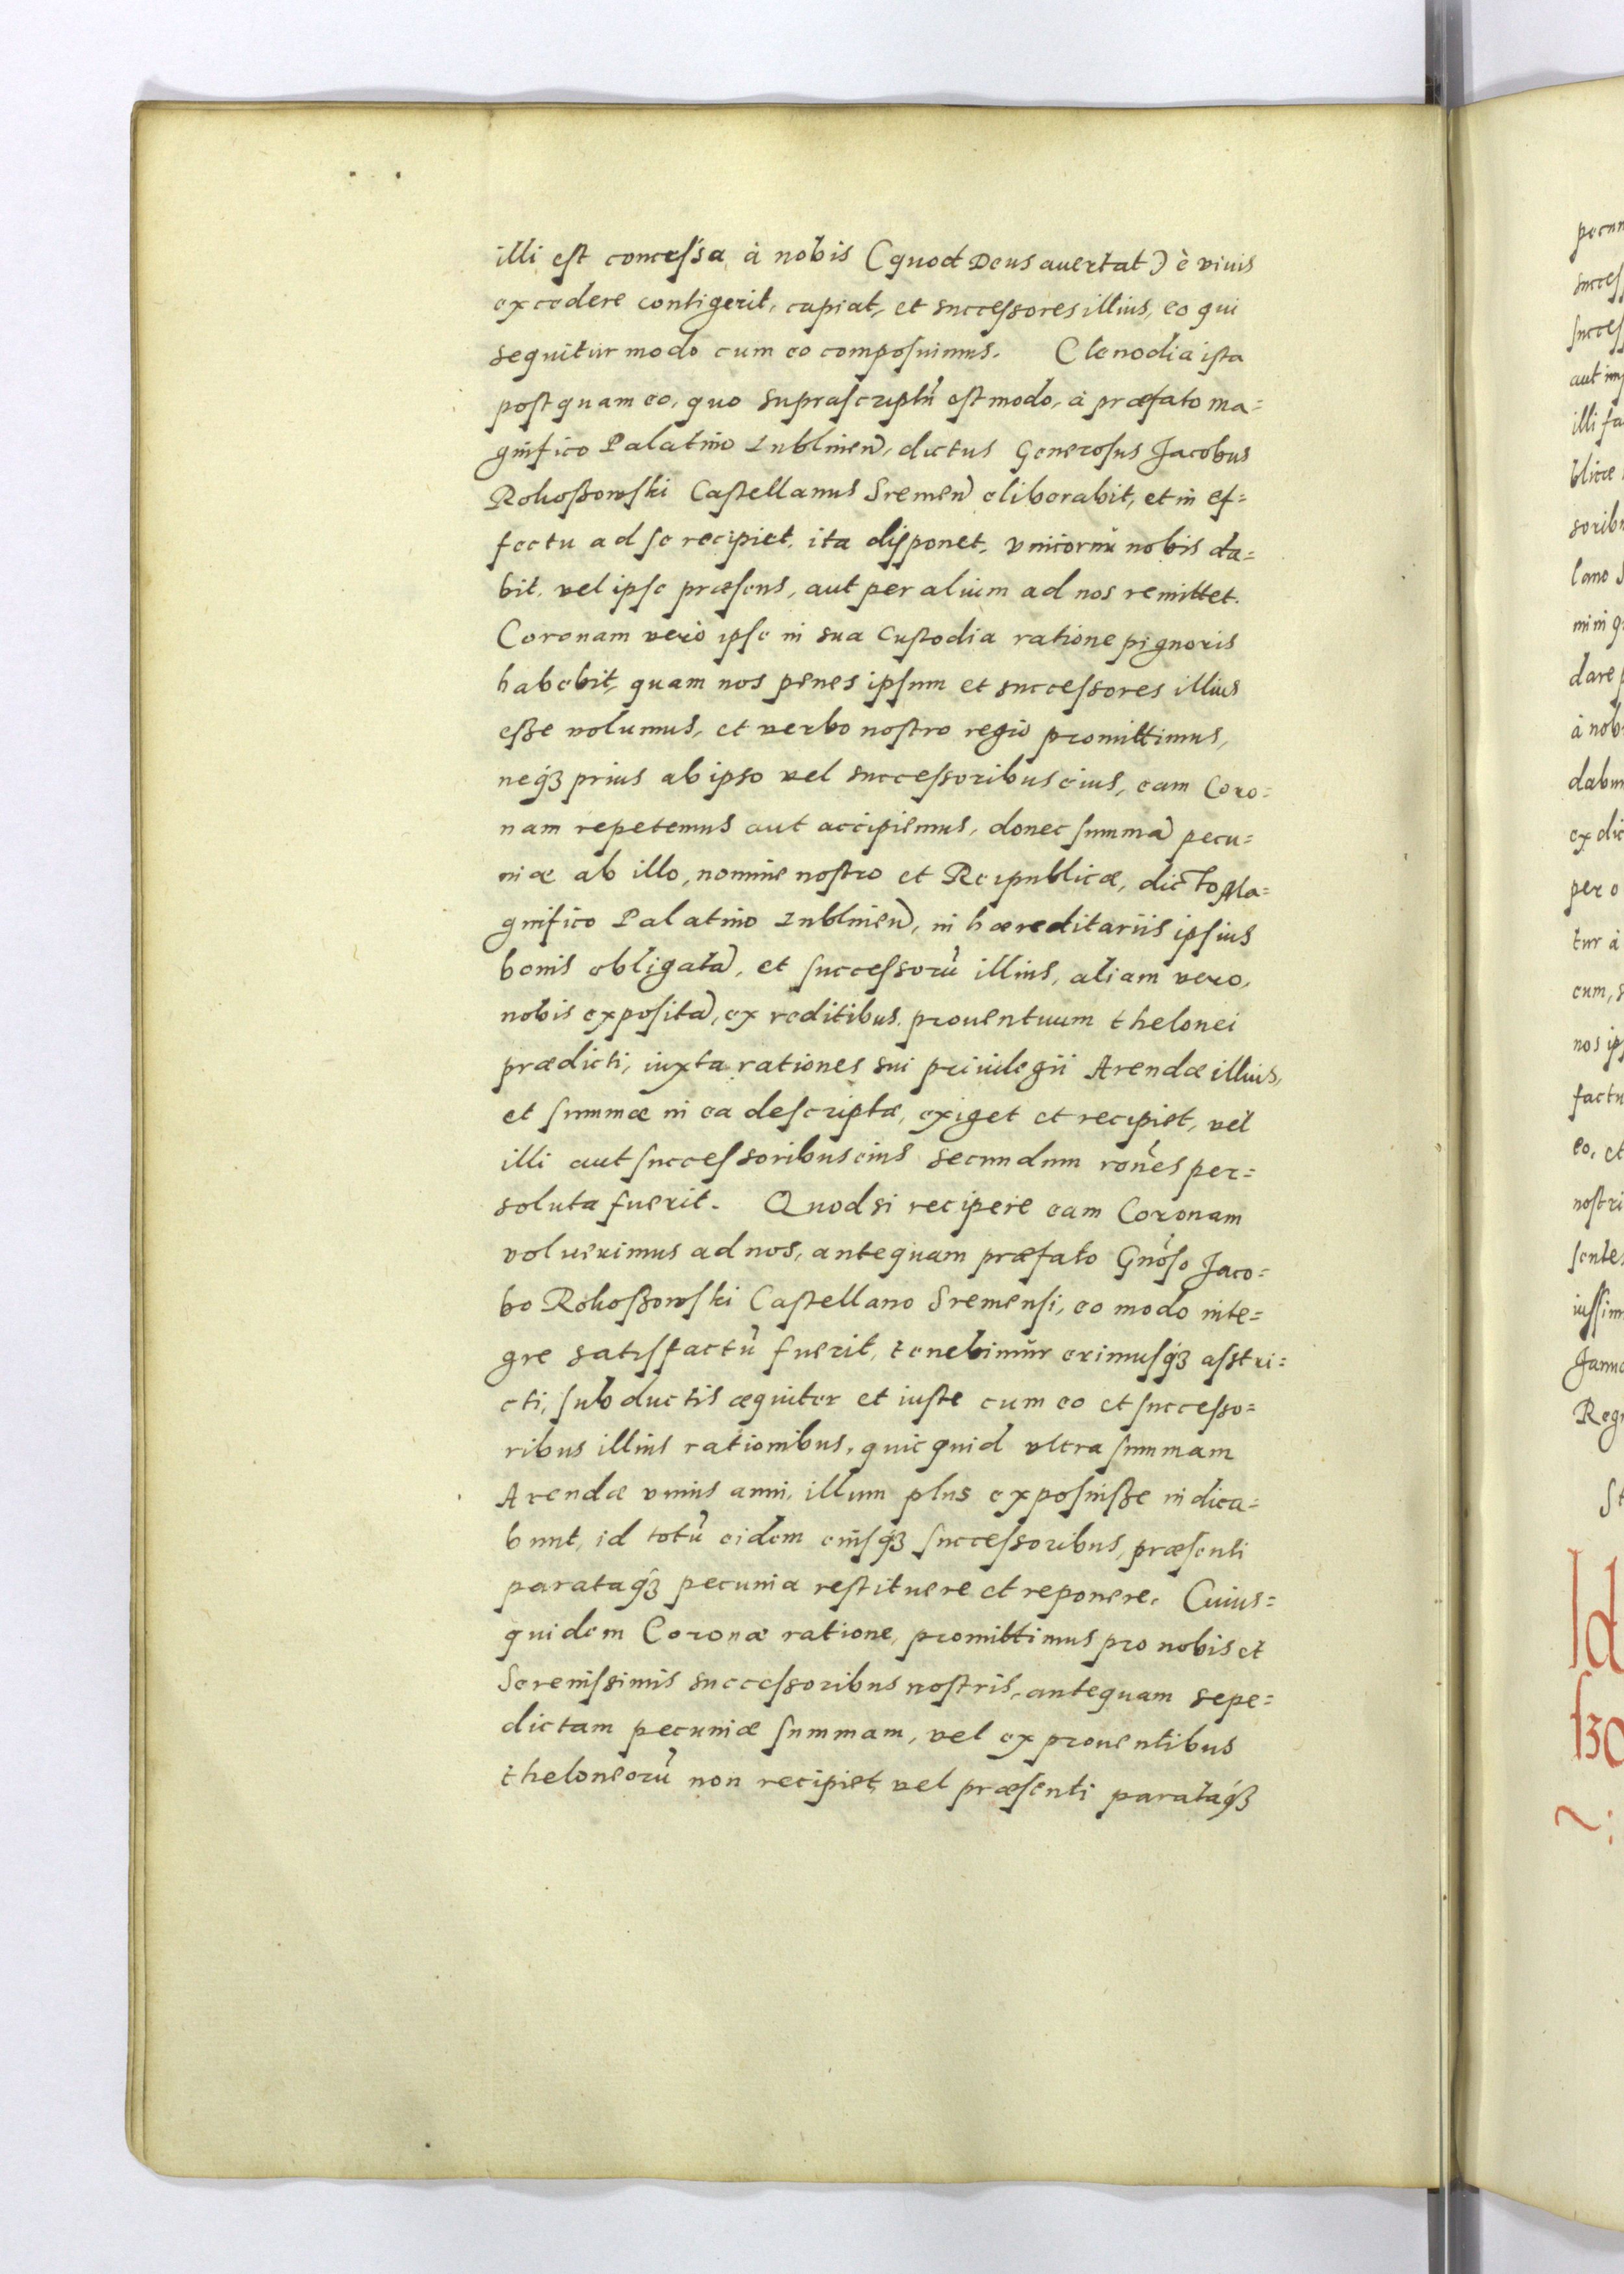 illi est concessa à nobis (quod Deus auertat) è viuis
excedere contigerit, capiat, et successores illius, eo qui
sequitur modo cum eo composuimus. Clenodia ista
postquam eo, quo suprascriptũ est modo, à præfato ma=
gnifico Palatino Lublinen, dictus Generosus Jacobus
Rokoßowski Castellanus Sremen eliberabit, et in ef=
fectu ad se recipiet, ita disponet, vnicornũ nobis da=
bit, vel ipse præsens, aut per alium ad nos remittet.
Coronam verò ipse in sua Custodia ratione pignoris
habebit, quam nos penes ipsum et successores illius
eße volumus, et verbo nostro regio promittimus,
neqȝ prius ab ipso vel successoribus eius, eam Coro=
nam repetemus aut accipiemus, donec summã pecu=
niæ ab illo, nomine nostro et Reipublicæ, dicto Ma=
gnifico Palatino Lublinen, in hæreditariis ipsius
bonis obligatã, et successorũ illius, aliam vero,
nobis expositã, ex reditibus prouentuum thelonei
prædicti, iuxta rationes sui priuilegii Arendæ illius,
et summæ in ea descriptæ, exiget et recipiet, vel
illi aut successoribus eius secundum rones per=
soluta fuerit. Quod si recipere eam Coronam
voluerimus ad nos, antequam præfato Gnoso Jaco=
bo Rokoßowski Castellano Sremensi, eo modo inte=
gre satisfactũ fuerit, tenebimur erimusqȝ astri=
cti, subductis æquiter et iuste cum eo et successo=
ribus illius rationibus, quicquid vltra summam
Arendæ vnius anni, illum plus exposuiße indica=
bunt, id totũ eidem eiusqȝ successoribus, præsenti
parataqȝ pecunia restituere et reponere. Cuius=
quidem Coronæ ratione, promittimus pro nobis et
Serenissimis successoribus nostris, antequam sepe=
dictam pecuniæ summam, vel ex prouentibus
theloneorũ non recipiet, vel præsenti parataqȝ